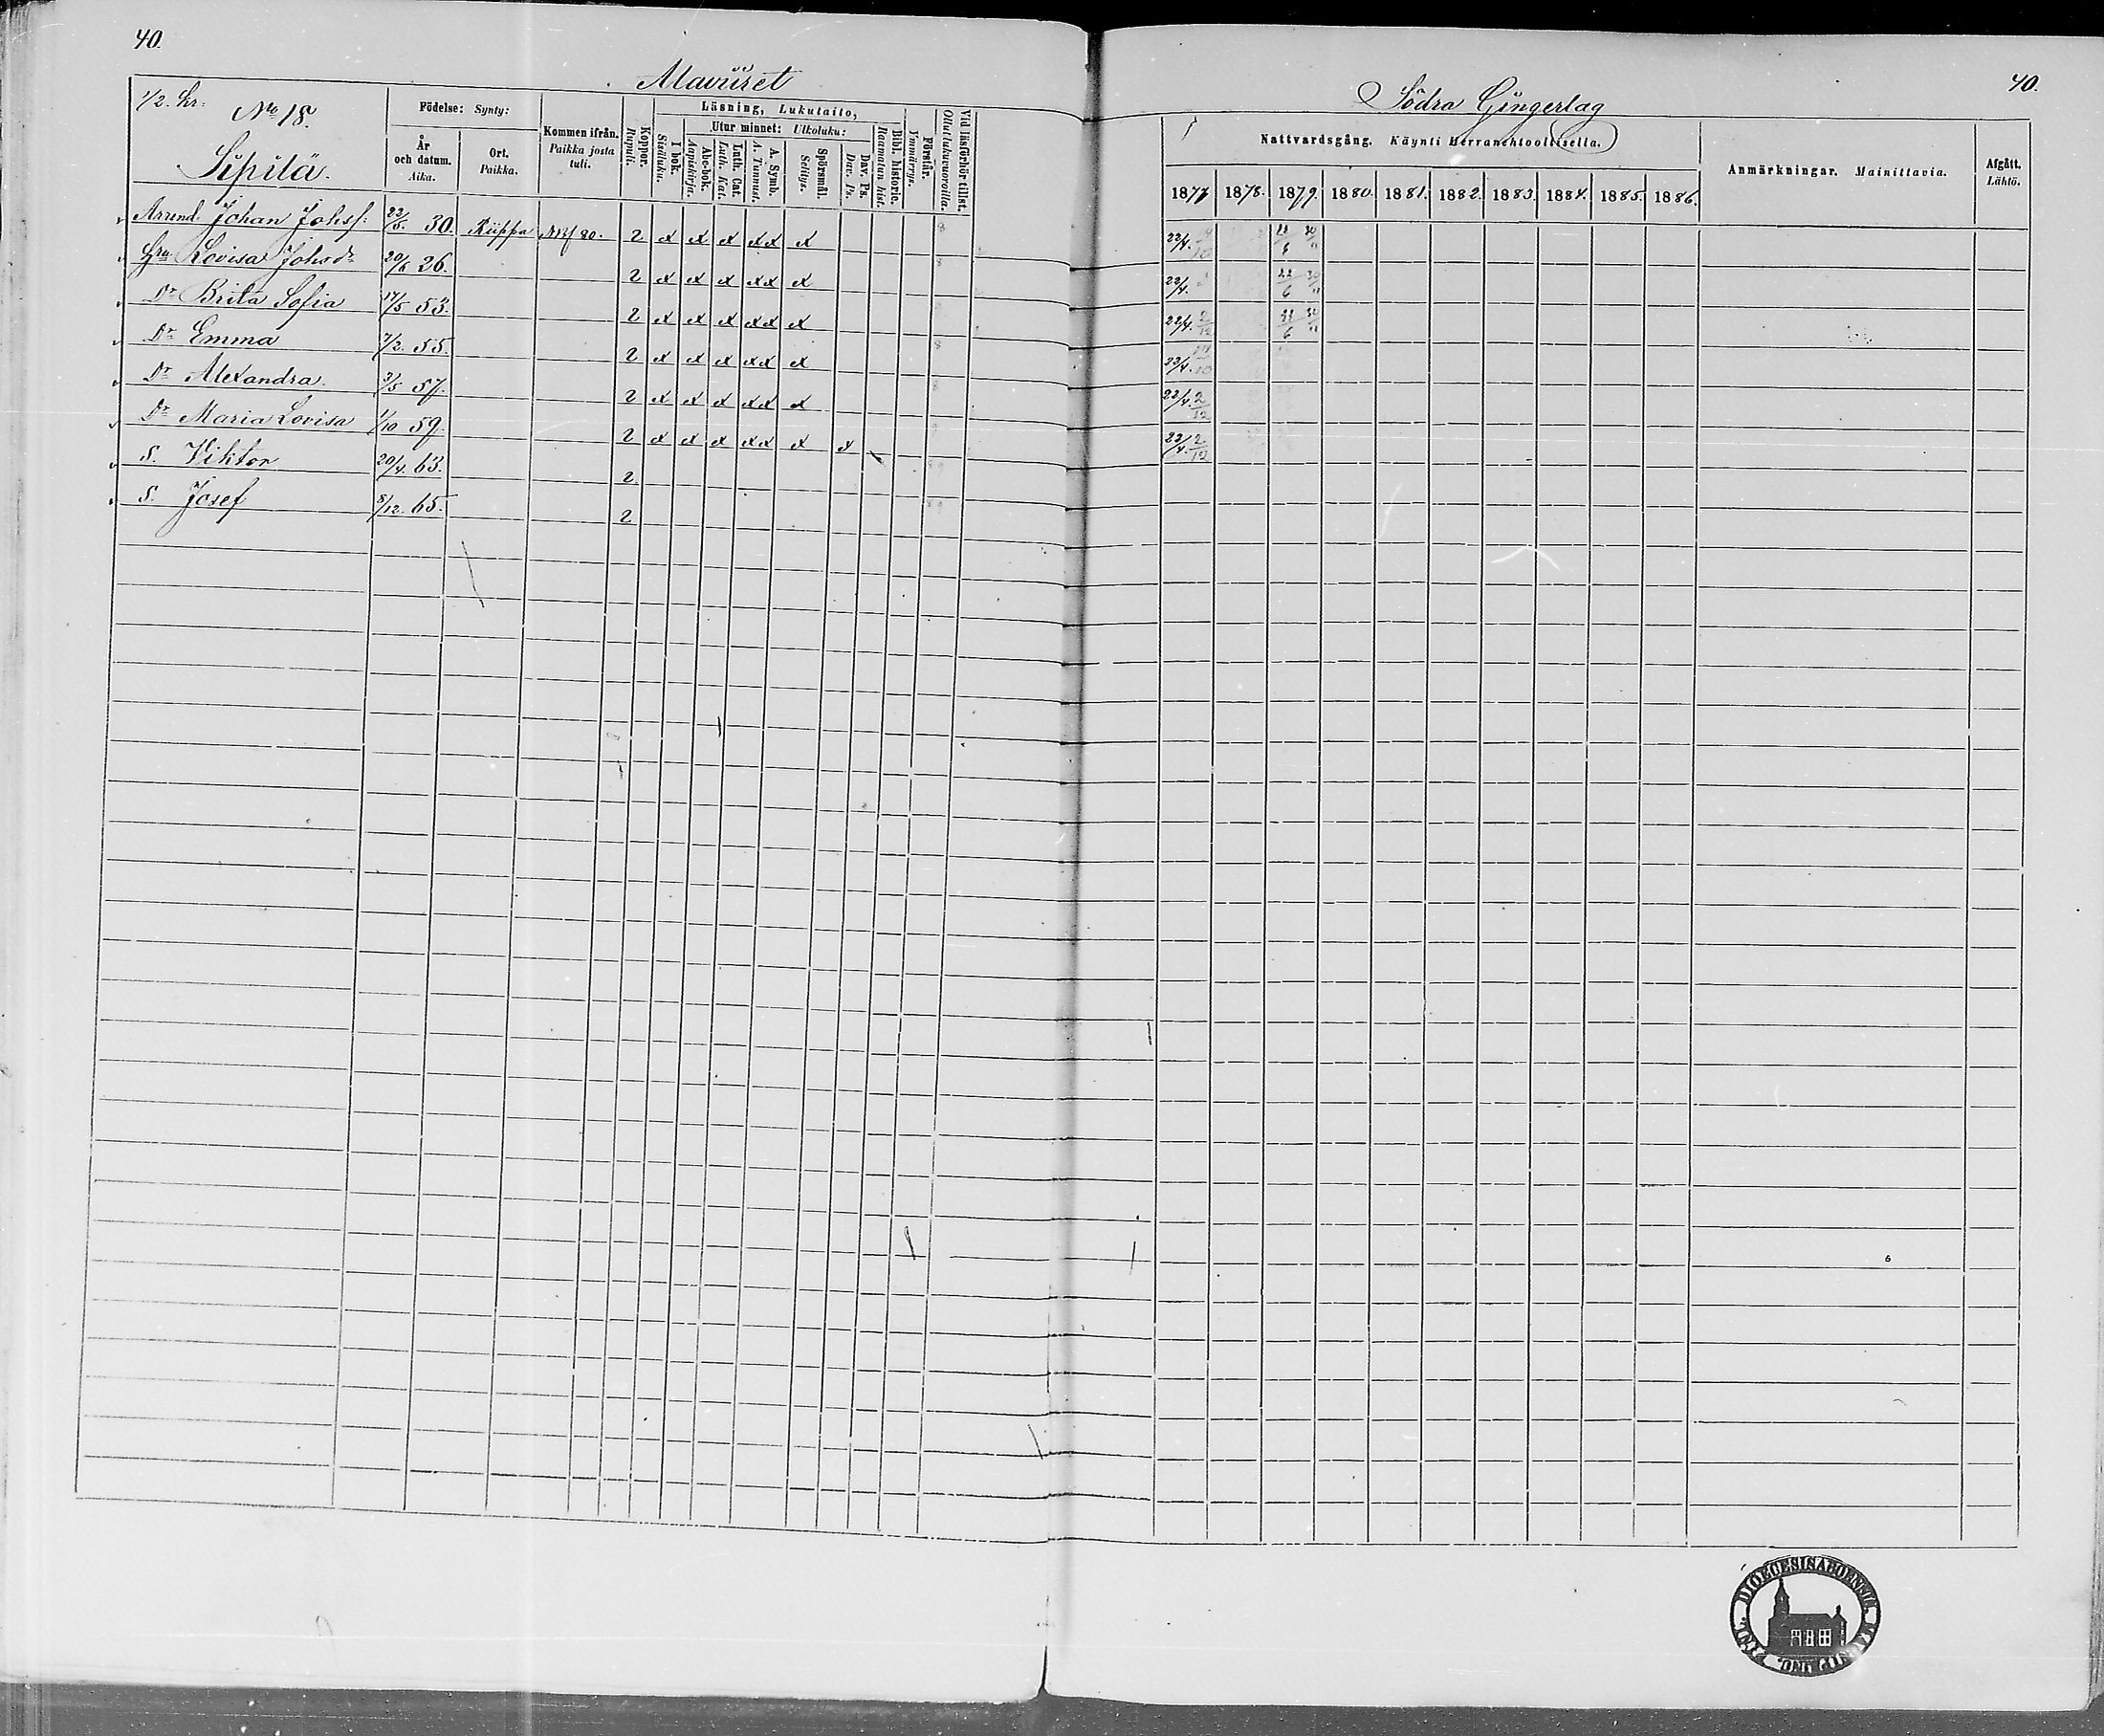 40.
Alavüret
1/2. hr.
No 18.
Sipilä.
Födelse: Synty:
År och datum. Aika.
Ort. Paikka.
Kommen ifrån. Paikka josta tuli.
Koppor. Rupuli.
Läsning, Lukutaito,
I bok. Sisäluku.
Utur minnet: Ulkoluku:
Abc-bok. Aapiskirja.
Luth. Cat. Luth. Kat.
A. Symb. A. Tunnust.
Spörsmål. Selitys.
Dav. Ps. Dav. Ps.
Bibl. historie. Raamatun hist.
Förstår. Ymmärrys.
Vid läsförhör tillst. Ollut lukuvuoroilla.
Arrend. Johan Johsf: 22/5. 30. Küppa 2 x x x xx x
Hru Lovisa Johsdr 20/6 26. 2 x x x xx x
Dr Brita Sofia 17/5 53. 2 x x x xx x
Dr Emma 7/2. 55. 2 x x x xx x
Dr Alexandra. 3/5 57. 2 x x x xx x
Dr Maria Lovisa 1/10 59. 2 x x x xx x x
S. Viktor 20/4. 63. 2
S. Josef 8/12. 65. 2
Södra Gingerlag
40.
Nattvardsgång. Käynti Herranehtoollisella.
Anmärkningar. Mainittavia.
Afgått. Lähtö.
1877 1878. 1879. 1880. 1881. 1882. 1883. 1884. 1885. 1886.
22/4.
22/4.
22/4. 2/12
22/4.
22/4. 2/12
22/4. 2/12
DIOECESIS ABOENSIS